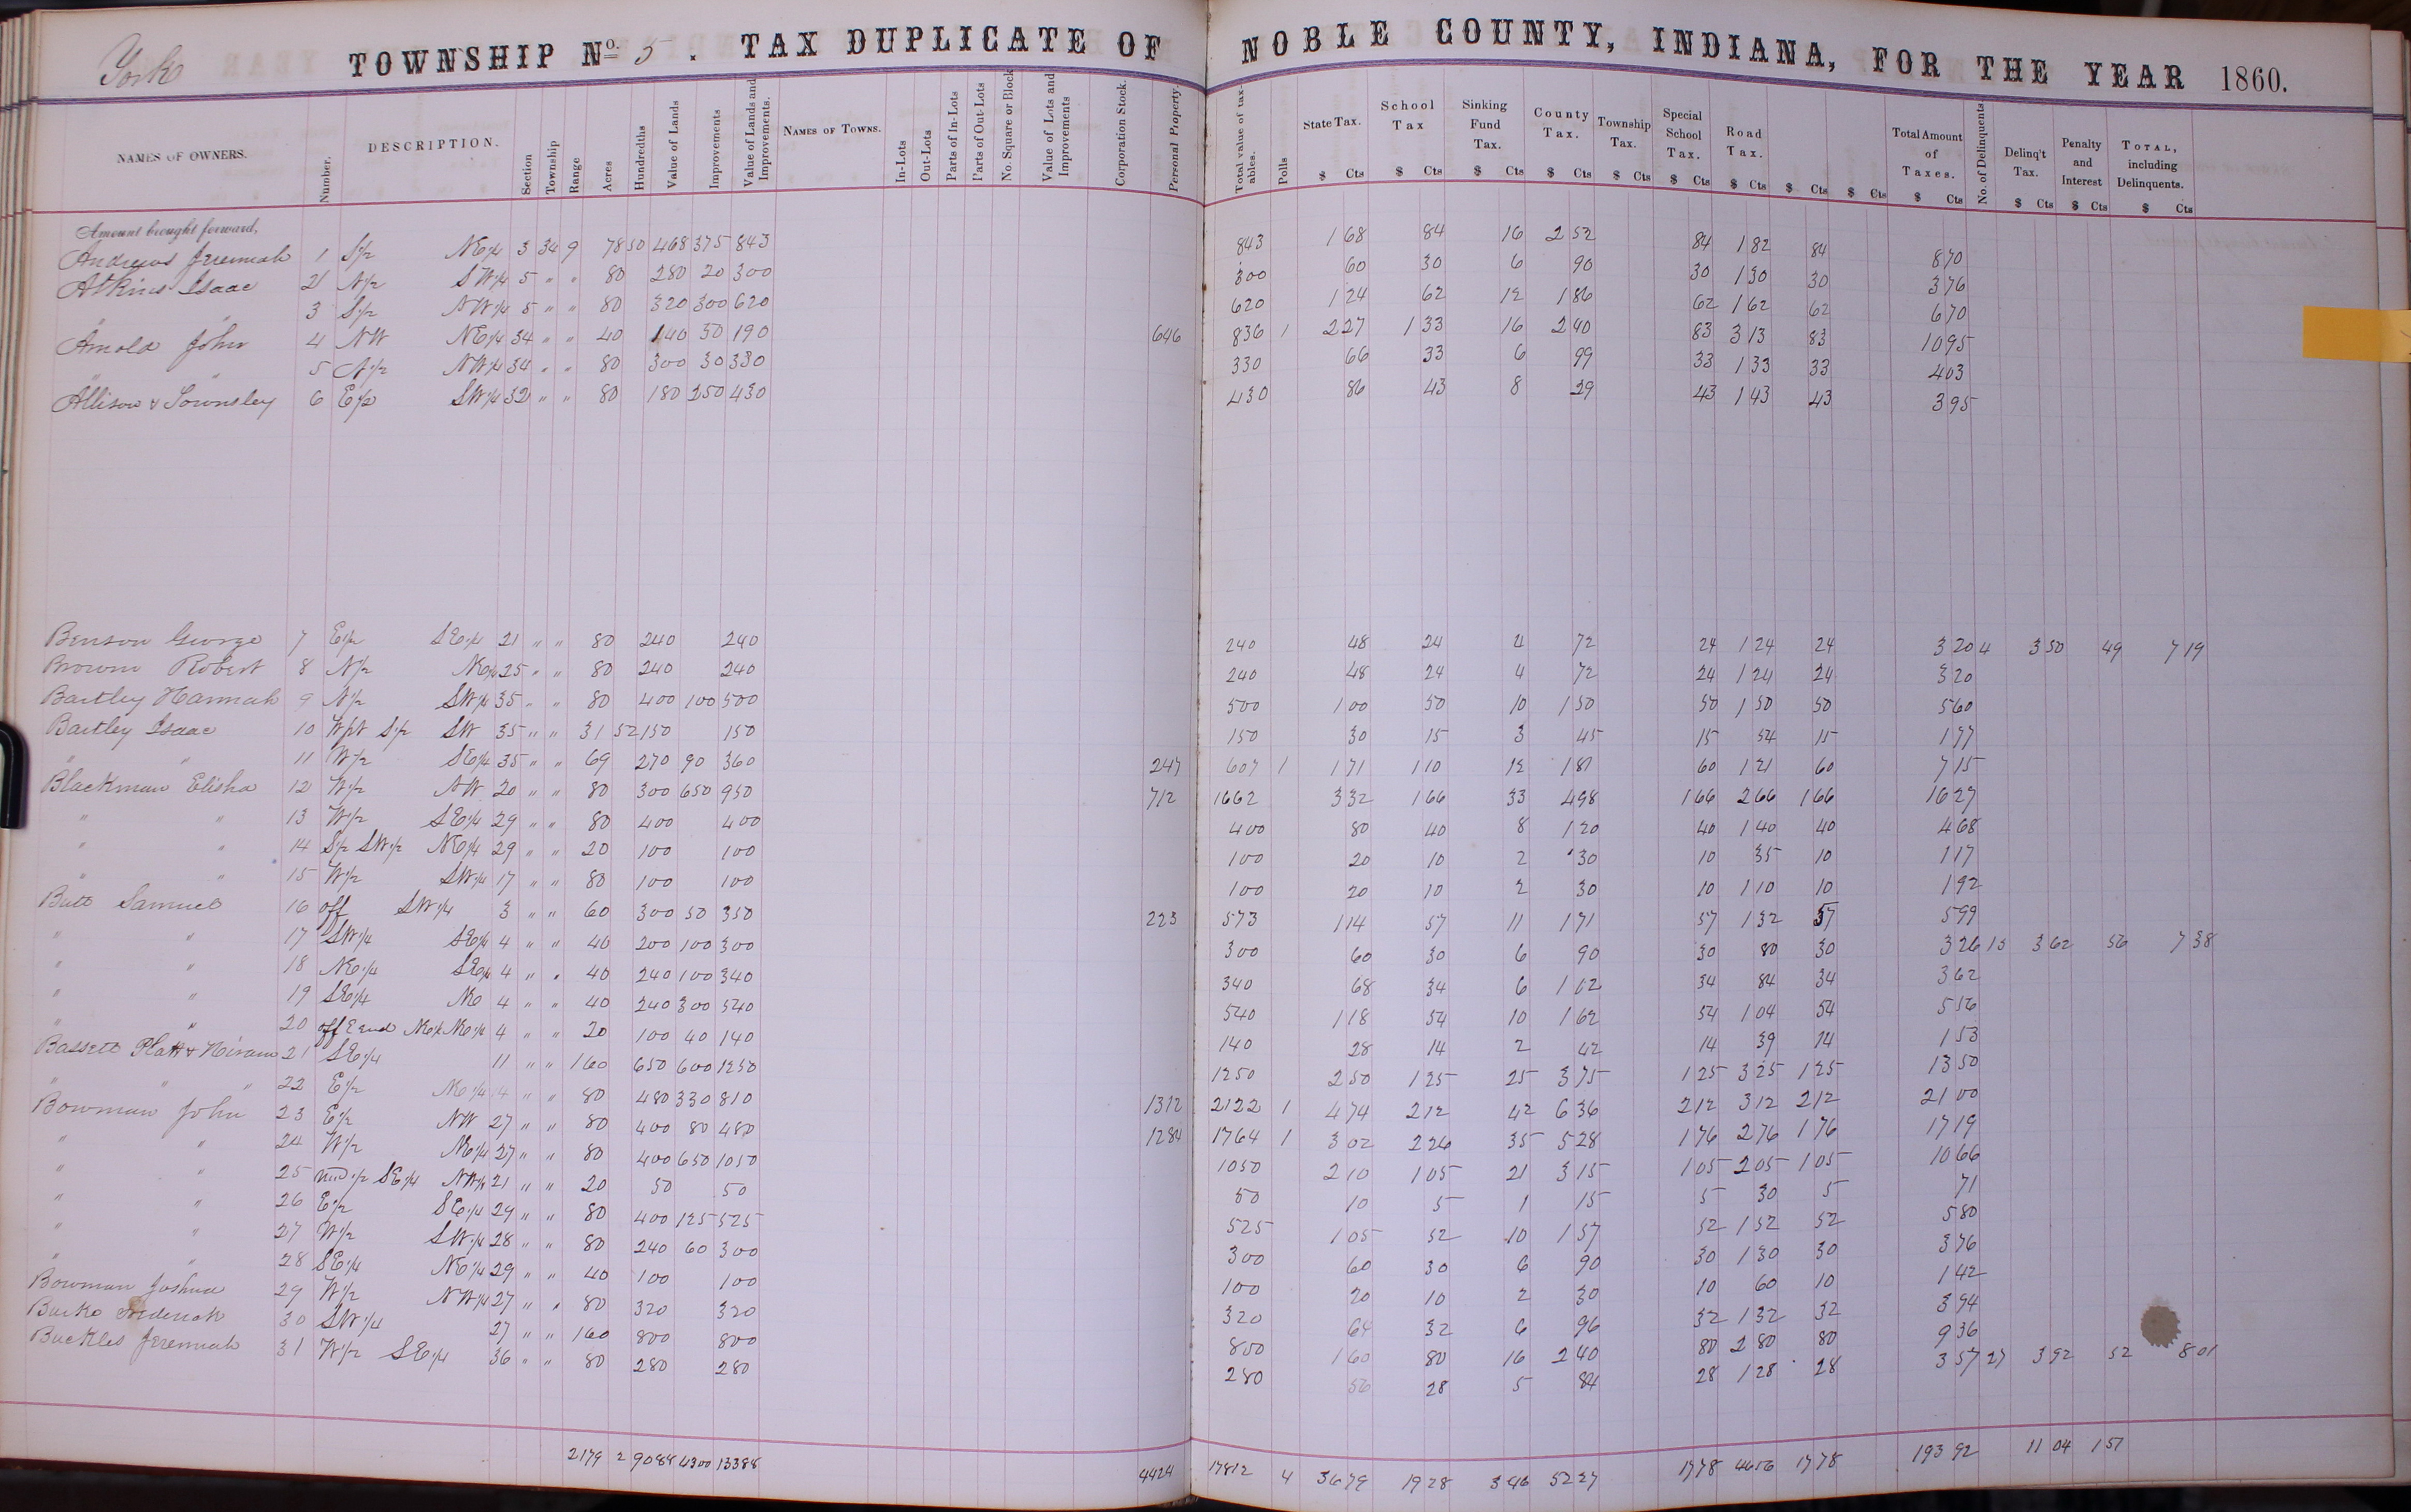 York TOWNSHIP No. 5. TAX DUPLICATE OF NOBLE COUNTY, INDIANA, FOR THE YEAR 1860.
NAMES OF OWNERS. Number. DESCRIPTION. Section Township Range Acres Hundredths Value of Lands Improvements Value of Lands and Improvements. NAMES OF TOWNS. In-Lots Out-Lots Parts of In-Lots Parts of Out-Lots No Square or Block Value of Lots and Improvements Corporation Stock. Personal Property. Total value of taxables. Polls State Tax. School Tax Sinking Fund Tax. County Tax. Township Tax. Special School Tax. Road Tax. Total Amount of Taxes. No. of Delinquents. Delinq't Tax. Penalty and Interest TOTAL, including Delinquents.
$ Cts $ Cts $ Cts $ Cts $ Cts $ Cts $ Cts $ Cts $ Cts $ Cts $ Cts $ Cts $ Cts
Amount brought forward,
Andrews Jeremiah 1 S1/2 NE1/4 3 34 9 78 50 468 375 843 843 1 68 84 16 2 52 84 1 82 84 8 70
Atkins Isaac 2 N1/2 SW1/4 5 " " 80 280 20 300 300 60 30 6 90 30 1 30 30 3 76
" " 3 S1/2 NW1/4 5 " " 80 320 300 620 620 1 24 62 12 1 86 62 1 62 62 6 70
Arnold John 4 NW NE1/4 34 " " 40 140 50 190 646 836 1 2 27 1 33 16 2 40 83 3 13 83 10 95
" " 5 N1/2 NW1/4 34 " " 80 300 30 330 330 66 33 6 99 33 1 33 33 4 03
Allison & Townsley 6 E1/2 SW1/4 32 " " 80 180 250 430 430 86 43 8 29 43 1 43 43 3 95
Benson George 7 E1/2 SE1/4 21 " " 80 240 240 240 48 24 4 72 24 1 24 24 3 20 4 3 50 49 7 19
Brown Robert 8 N1/2 NE1/4 25 " " 80 240 240 240 48 24 4 72 24 1 24 24 3 20
Bartley Hannah 9 N1/2 SW1/4 35 " " 80 400 100 500 500 1 00 50 10 1 50 50 1 50 50 5 60
Bartley Isaac 10 Wpt S1/2 SW 35 " " 31 52 150 150 150 30 15 3 45 15 54 15 1 77
" " 11 W1/2 SE1/4 35 " " 69 270 90 360 247 607 1 1 71 1 10 12 1 81 60 1 21 60 7 15
Blackman Elisha 12 W1/2 NW 20 " " 80 300 650 950 712 1662 3 32 1 66 33 4 98 1 66 2 66 1 66 16 27
" " 13 W1/2 SE1/4 29 " " 80 400 400 400 80 40 8 1 20 40 1 40 40 4 68
" " 14 S1/2 SW1/2 NE1/4 29 " " 20 100 100 100 20 10 2 30 10 35 10 1 17
" " 15 W1/2 SW1/4 17 " " 80 100 100 100 20 10 2 30 10 1 10 10 1 92
Butt Samuel 16 off SW1/4 3 " " 60 300 50 350 223 573 1 14 57 11 1 71 57 1 32 57 5 99
" " 17 SW1/4 SE1/4 4 " " 40 200 100 300 300 60 30 6 90 30 80 30 3 26 15 3 62 56 7 38
" " 18 NE1/4 SE1/4 4 " " 40 240 100 340 340 68 34 6 1 02 34 84 34 3 62
" " 19 SE1/4 NE 4 " " 40 240 300 540 540 1 18 54 10 1 62 54 1 04 54 5 56
" " 20 off E end NE1/4 NE1/4 4 " " 20 100 40 140 140 28 14 2 42 14 39 14 1 53
Bassett Platt & Hiram 21 SE1/4 11 " " 160 650 600 1250 1250 2 50 1 25 25 3 75 1 25 3 25 1 25 13 50
" " " 22 E1/2 NE1/4 14 " " 80 480 330 810 1312 2122 1 4 74 2 12 42 6 36 2 12 3 12 2 12 21 00
Bowman John 23 E1/2 NW 27 " " 80 400 80 480 1284 1764 1 3 02 2 26 35 5 28 1 76 2 76 1 76 17 19
" " 24 W1/2 NE1/4 27 " " 80 400 650 1050 1050 2 10 1 05 21 3 15 1 05 2 05 1 05 10 66
" " 25 und1/2 SE1/4 NW1/4 21 " " 20 50 50 50 10 5 1 15 5 30 5 71
" " 26 E1/2 SE1/4 29 " " 80 400 125 525 525 1 05 52 10 1 57 52 1 52 52 5 80
" " 27 W1/2 SW1/4 28 " " 80 240 60 300 300 60 30 6 90 30 1 30 30 3 76
" " 28 SE1/4 NE1/4 29 " " 40 100 100 100 20 10 2 30 10 60 10 1 42
Bowman Joshua 29 W1/2 NW1/4 27 " " 80 320 320 320 64 32 6 96 32 1 32 32 3 94
Burke Frederick 30 SW1/4 27 " " 160 800 800 800 1 60 80 16 2 40 80 2 80 80 9 36
Buckles Jeremiah 31 W1/2 SE1/4 36 " " 80 280 280 280 56 28 5 84 28 1 28 28 3 57 27 3 92 52 8 01
2179 2 9088 4300 13388 4424 17812 4 36 79 19 28 3 46 52 27 17 78 46 56 17 78 193 92 11 04 1 57